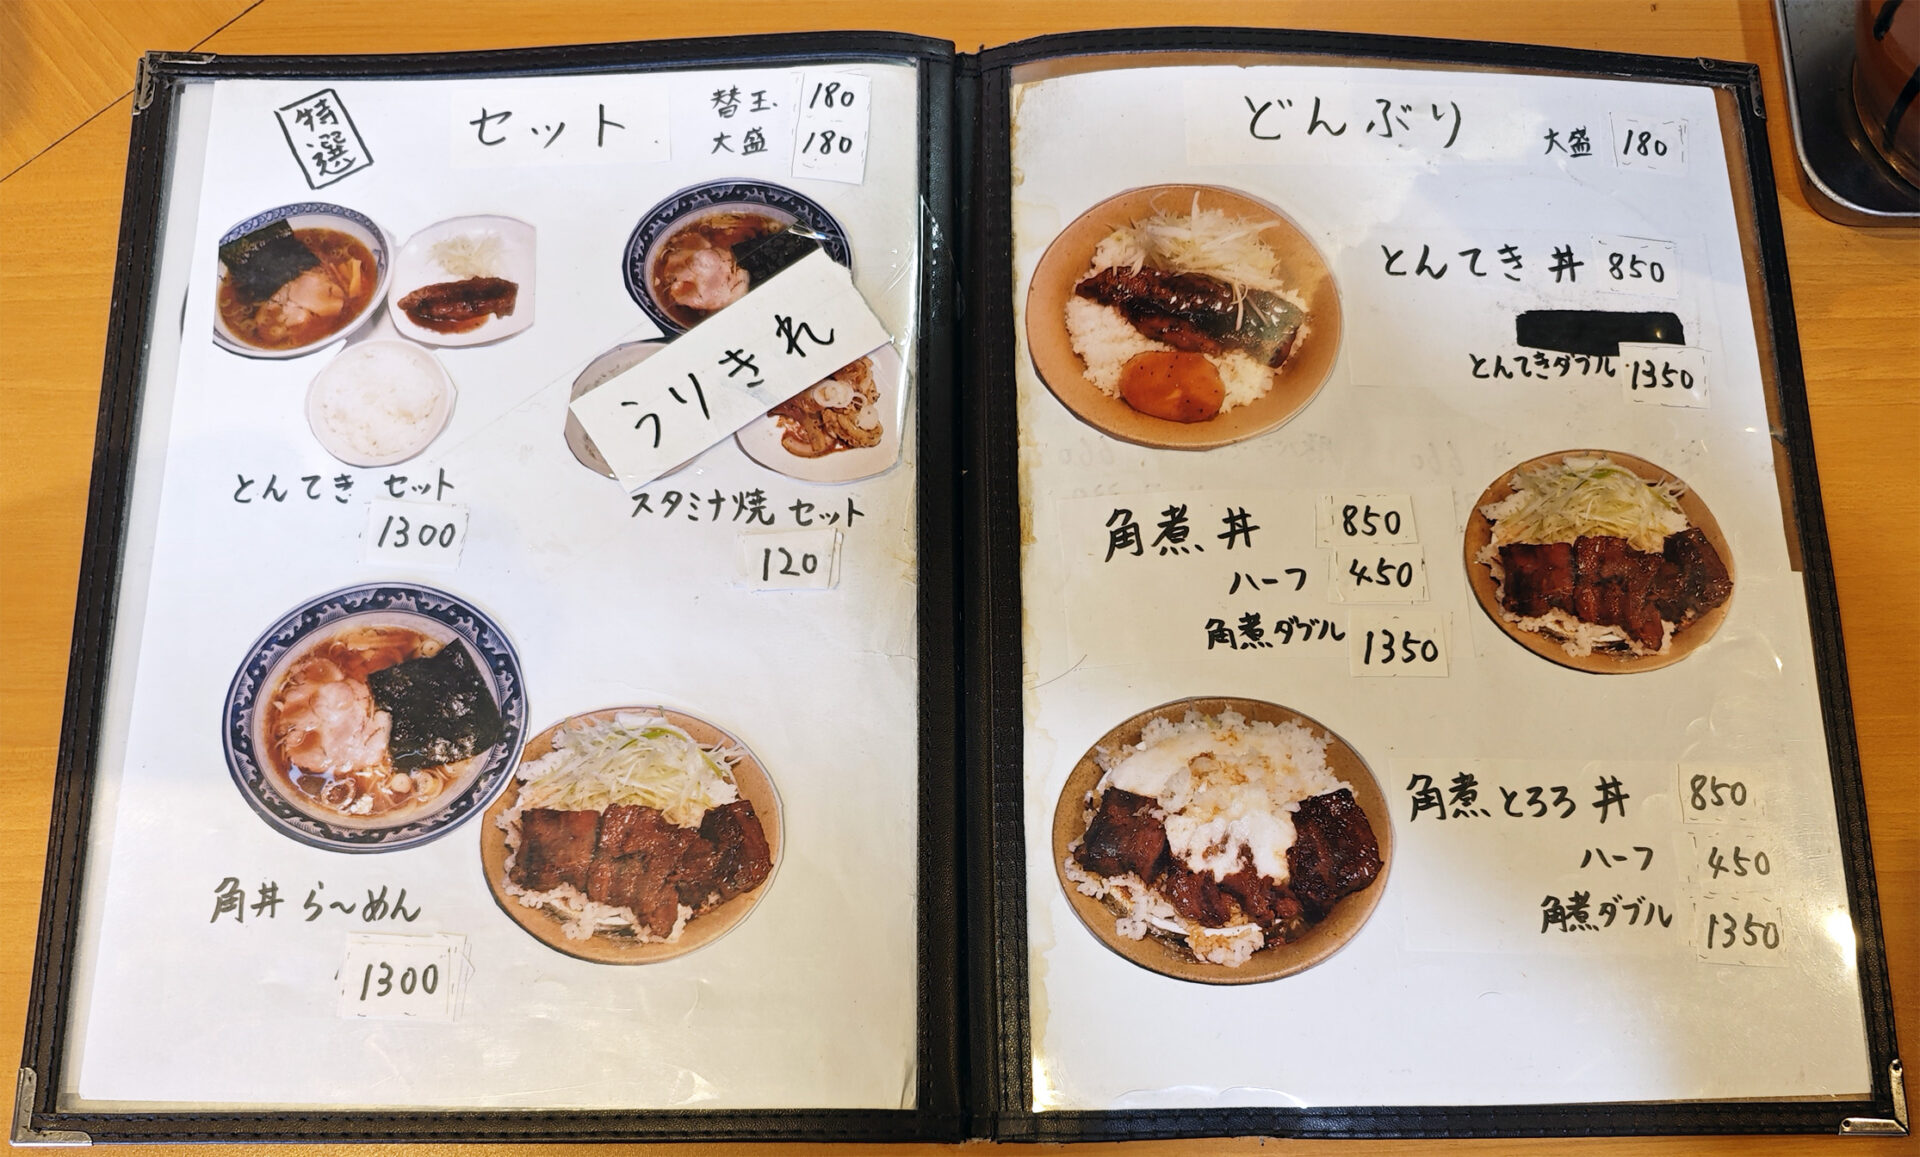 特選
セット
替玉 180
大盛 180
うりきれ
とんてき セット
1300
スタミナ焼 セット
120
角丼 ら〜めん
1300
どんぶり
大盛 180
とんてき 丼 850
とんてきダブル 1350
角煮 丼 850
ハーフ 450
角煮ダブル 1350
角煮とろろ 丼 850
ハーフ 450
角煮ダブル 1350